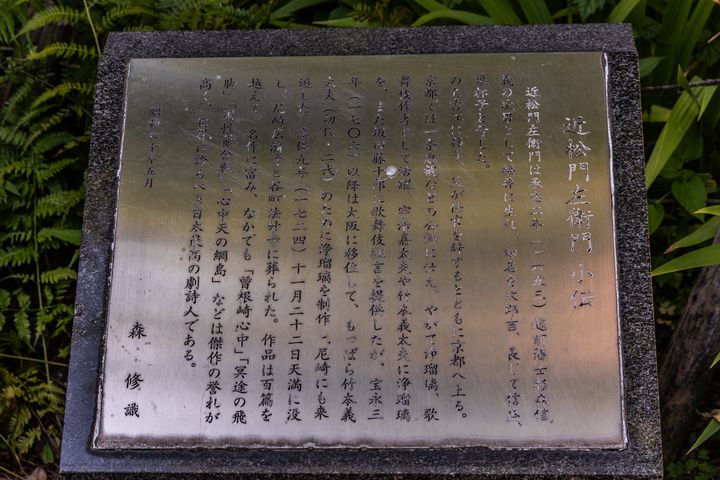 近松門左衛門 小伝
近松門左衛門は承応二年(一六五三)越前藩士杉森信
義の次男として福井に生れ、幼名を次郎吉、長じて信盛、
と号した。
のち吉江に移り、父が仕官を辞するとともに京都へ上る。
京都では一条恵観などの公卿に仕え、やがて浄瑠璃、歌
舞伎作者として活躍、宇治嘉太夫や竹本義太夫に浄瑠璃
を、また坂田藤十郎に歌舞伎狂言を提供したが、宝永三
年(一七〇六)以降は大阪に移住して、もっぱら竹本義
太夫(初代・二代)のために浄瑠璃を制作し、尼崎にも来
遊した。享保九年(一七二四)十一月二十二日天満に没
し、尼崎広済寺と谷町法妙寺に葬られた。作品は百篇を
越え、名作に富み、なかでも「曽根崎心中」「冥途の飛
脚」「国性爺合戦」「心中天の網島」などは傑作の誉れが
高く、世界に誇るべき日本最高の劇詩人である。
昭和 十年五月
森 修 識